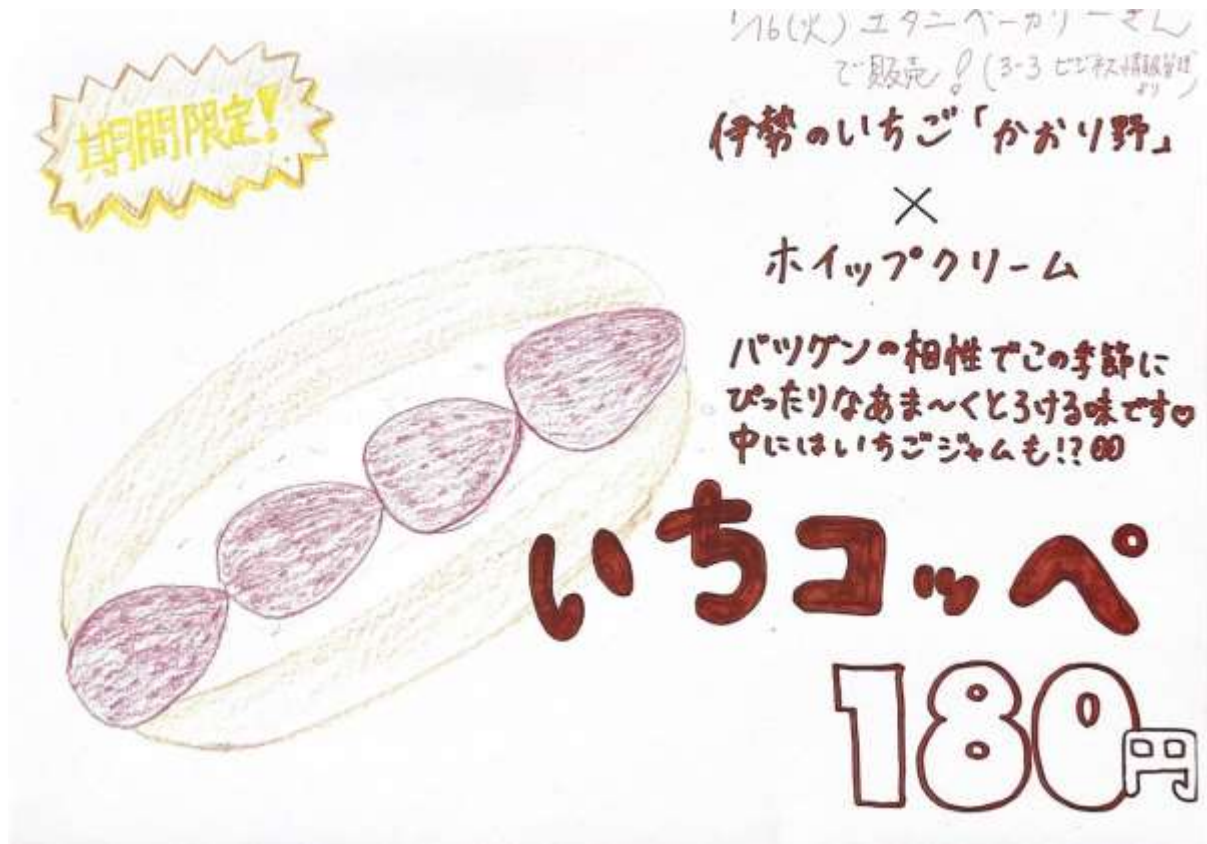 期間限定!
1/16(火) ユタニベーカリーさん
で販売!(3-3 ビジネス情報管理
より)
伊勢のいちご「かおり野」
×
ホイップクリーム
バツグンの相性でこの季節に
ぴったりなあま〜くとろける味です♡
中にはいちごジャムも!?
いちコッペ
180円